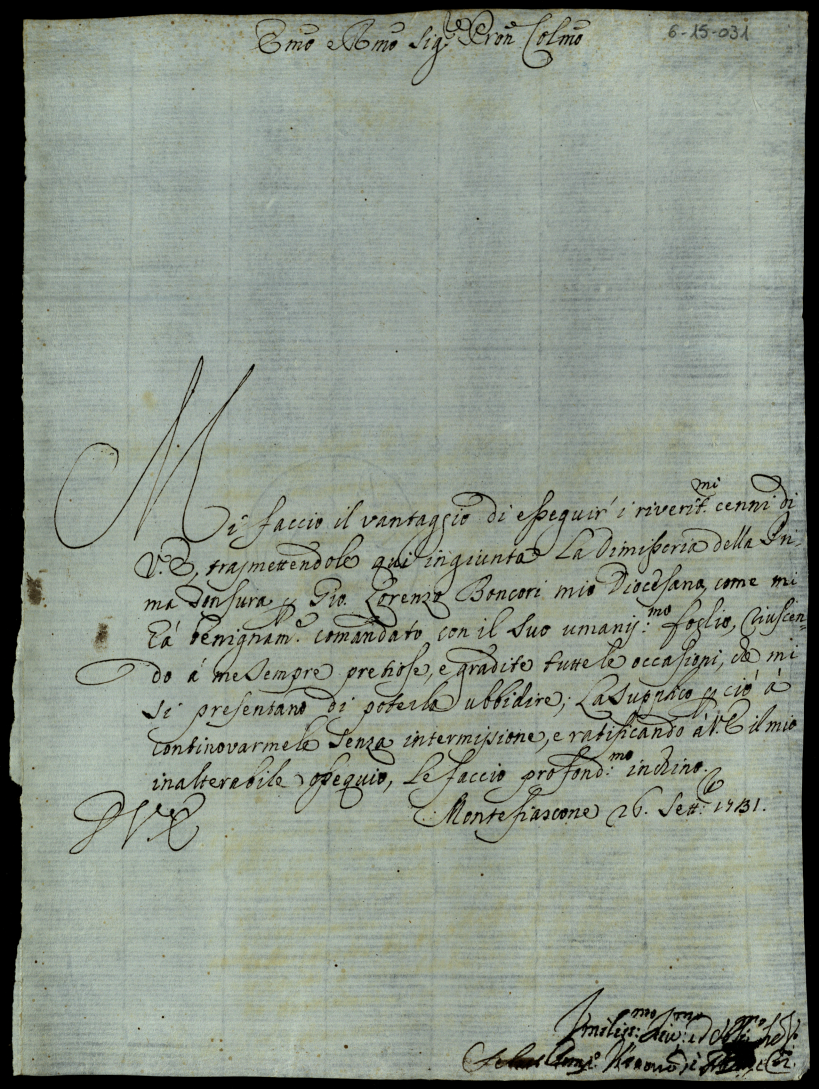 6-15-031
Emo e Rmo Sig.re Pron Colmo
Mi faccio il vantaggio di esseguir' i riverit.mi cenni di
V.E, trasmettendole qui ingiunta La Dimissoria della Pri-
ma Tonsura p Gio. Lorenzo Boncori mio Diocesano, come mi
hà benignam.e comandato con il suo umaniss.mo foglio, Riuscen-
do à me sempre pretiose, e gradite tutte le occasioni, che mi
si presentano di poterla ubbidire; La supplico p ciò à
continovarmele senza intermissione, e ratificando à V.E il mio
inalterabile ossequio, Le faccio profond.mo inchino.
DVE Montefiascone 26. Sett.e 1731.
Umiliss.mo